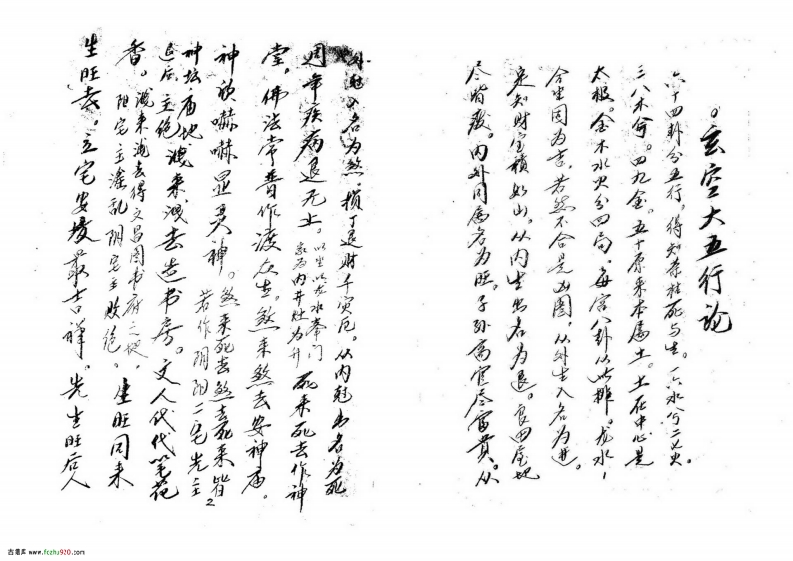 玄空大五行论
六十四卦分五行。得知荣枯死与生。一六水兮二七火。
三八木兮。四九金。五十原来本属土。土在中心是
太极。金木水火分四局，每宫八卦从此排。龙水
合生同为吉。若然不合是凶图，从外生入名为进。
定知财宝积如山。从内生出名为退。良田屋地
尽皆废。内外同属名为旺。子孙高官尽富贵。从
外克入名为煞 损丁退财千灾厄。从内克出名为死
週年疾病退无止。
以坐以龙水奉门
家为内井灶为升
死来死去作神
堂，佛法常普作渡众生。煞来煞去安神庙。
神须嚇嚇显灵神。煞来死去煞去死来皆
神坛庙地
若作阴阳二宅先主
退后主绝
洩来洩去造书房。文人代代笔花
香。
洩来洩去得文昌图书府之便
阳宅主淫乱阴宅主败绝。
生旺同来
生旺去。立宅安坟最吉祥。先生旺后人
2
古易库 www.fczhu920.com